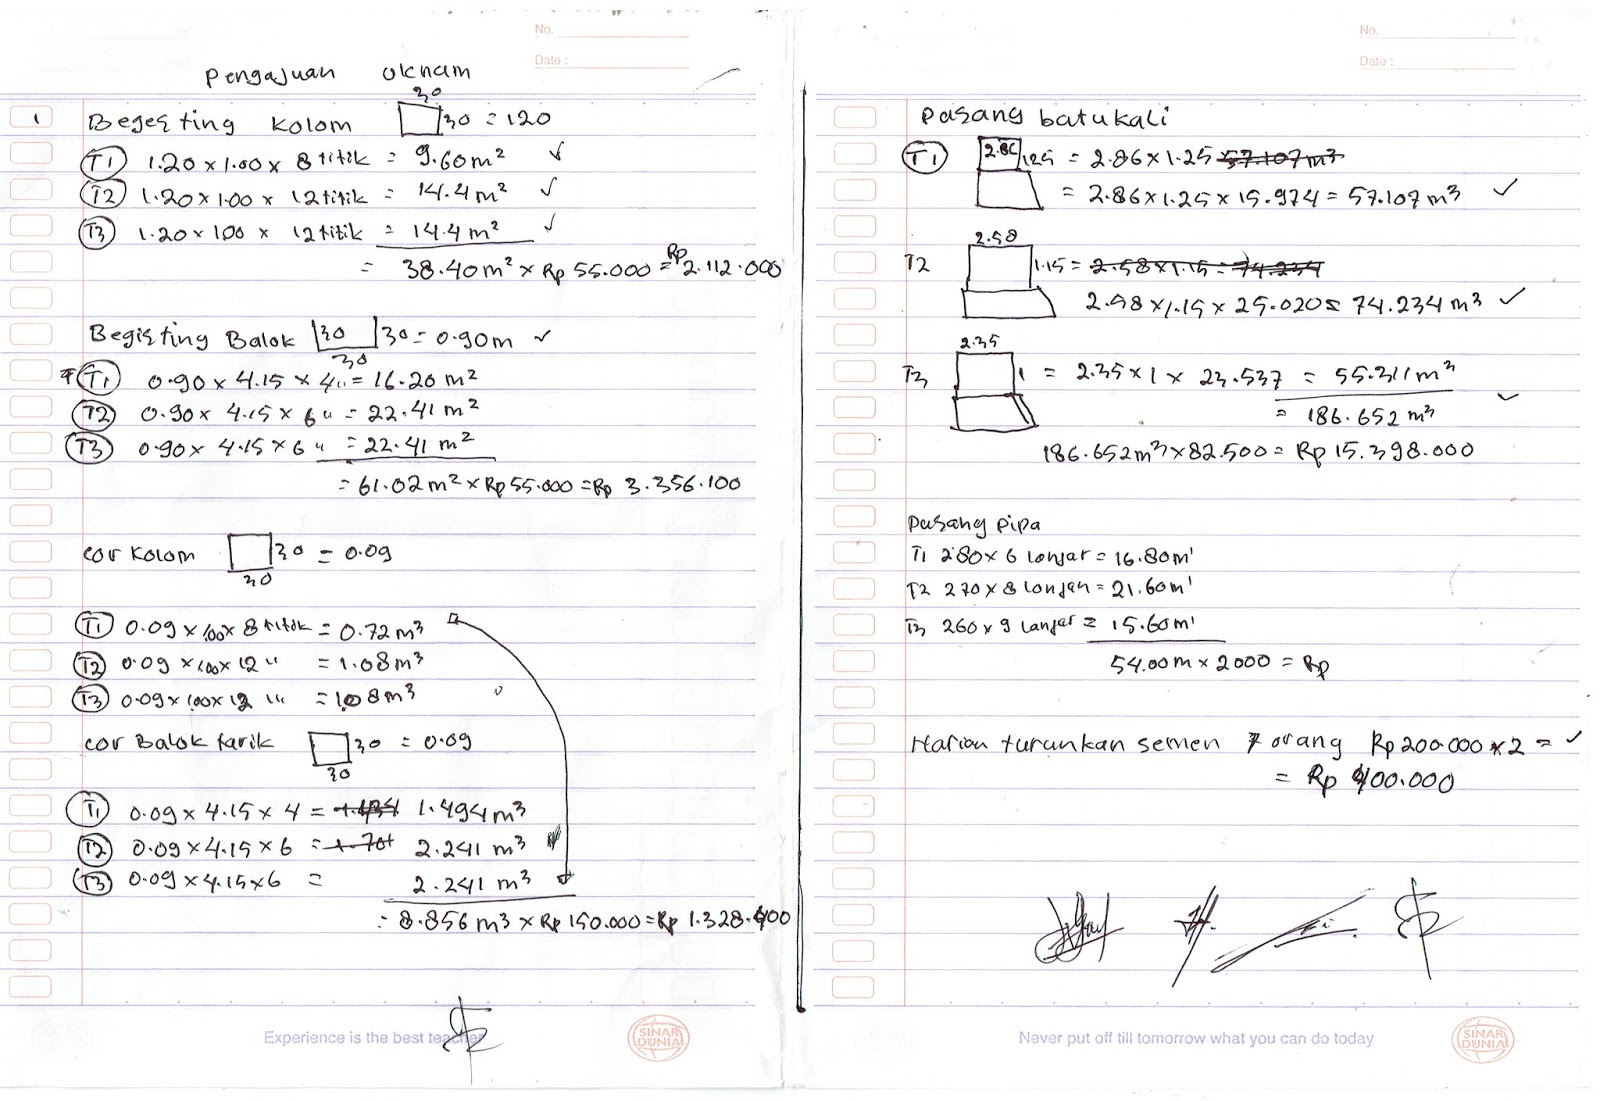 No.
Date :
Pengajuan oknam
1 Begesting Kolom 30 30 = 120
T1 1.20 x 1.00 x 8 titik = 9.60 m²
T2 1.20 x 1.00 x 12 titik = 14.4 m²
T3 1.20 x 100 x 12 titik = 14.4 m²
= 38.40 m² x Rp 55.000 = Rp 2.112.000
Begisting Balok 30 30 30 = 0.90 m
T1 0.90 x 4.15 x 4 " = 16.20 m²
T2 0.90 x 4.15 x 6 " = 22.41 m²
T3 0.90 x 4.15 x 6 " = 22.41 m²
= 61.02 m² x Rp 55.000 = Rp 3.356.100
cor Kolom 30 30 = 0.09
T1 0.09 x 100 x 8 titik = 0.72 m³
T2 0.09 x 100 x 12 " = 1.08 m³
T3 0.09 x 100 x 12 " = 1.08 m³
cor Balok tarik 30 30 = 0.09
T1 0.09 x 4.15 x 4 = 1.494 m³
T2 0.09 x 4.15 x 6 = 2.241 m³
T3 0.09 x 4.15 x 6 = 2.241 m³
= 8.856 m³ x Rp 150.000 = Rp 1.328.400
Experience is the best teacher
SINAR DUNIA
No.
Date :
Pasang batukali
T1 2.86 1.25 = 2.86 x 1.25 57.107 m³
= 2.86 x 1.25 x 15.974 = 57.107 m³
T2 2.58 1.15 = 2.58 x 1.15 = 74.234
2.58 x 1.15 x 25.020 = 74.234 m³
T3 2.35 1 = 2.35 x 1 x 23.537 = 55.311 m³
= 186.652 m³
186.652 m³ x 82.500 = Rp 15.398.000
Pasang pipa
T1 280 x 6 lonjar = 16.80 m'
T2 270 x 8 lonjar = 21.60 m'
T3 260 x 9 lonjar = 15.60 m'
54.00 m x 2000 = Rp
Harian turunkan semen 7 orang Rp 200.000 x 2 =
= Rp 400.000
Never put off till tomorrow what you can do today
SINAR DUNIA